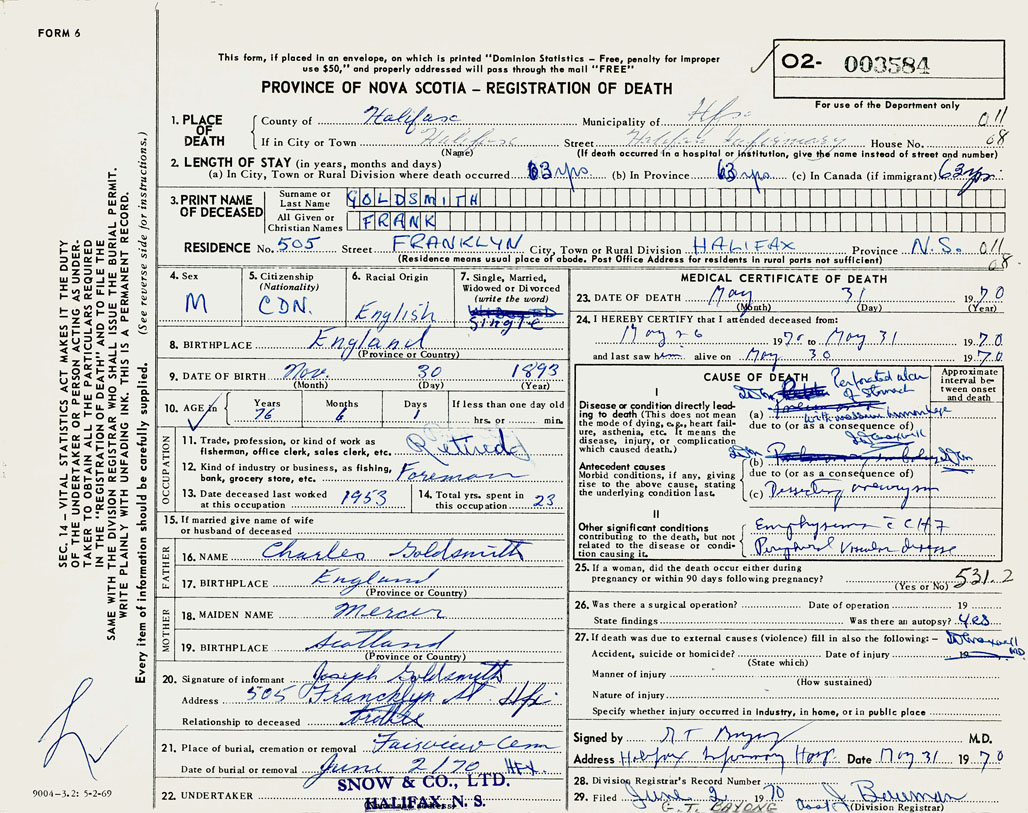 FORM 6
This form, if placed in an envelope, on which is printed "Dominion Statistics – Free, penalty for improper
use $50," and properly addressed will pass through the mail "FREE"
O2- 003584
PROVINCE OF NOVA SCOTIA – REGISTRATION OF DEATH
For use of the Department only
1. PLACE OF DEATH
County of Halifax Municipality of Hfx. 011
If in City or Town Halifax Street Halifax Infirmary House No. 08
(Name) (If death occurred in a hospital or institution, give the name instead of street and number)
2. LENGTH OF STAY (in years, months and days)
(a) In City, Town or Rural Division where death occurred 63 yrs. (b) In Province 63 yrs. (c) In Canada (if immigrant) 63 yrs.
3. PRINT NAME OF DECEASED
Surname or Last Name GOLDSMITH
All Given or Christian Names FRANK
RESIDENCE No. 505 Street FRANKLYN City, Town or Rural Division HALIFAX Province N.S. 011
(Residence means usual place of abode. Post Office Address for residents in rural parts not sufficient) 08.
4. Sex
M
5. Citizenship
(Nationality)
CDN.
6. Racial Origin
English
7. Single, Married,
Widowed or Divorced
(write the word)
Single
8. BIRTHPLACE England
(Province or Country)
9. DATE OF BIRTH Nov. 30 1893
(Month) (Day) (Year)
10. AGE in Years Months Days If less than one day old
76 6 1 hrs. or min.
OCCUPATION
11. Trade, profession, or kind of work as
fisherman, office clerk, sales clerk, etc. Retired
12. Kind of industry or business, as fishing,
bank, grocery store, etc. Foreman
13. Date deceased last worked
at this occupation 1953
14. Total yrs. spent in
this occupation 23
15. If married give name of wife
or husband of deceased
FATHER
16. NAME Charles Goldsmith
17. BIRTHPLACE England
(Province or Country)
MOTHER
18. MAIDEN NAME Mercer
19. BIRTHPLACE Scotland
(Province or Country)
20. Signature of informant Joseph Goldsmith
Address 505 Francklyn St Hfx.
Relationship to deceased brother
21. Place of burial, cremation or removal Fairview Cem
Date of burial or removal June 2/70 Hfx.
22. UNDERTAKER SNOW & CO., LTD.
HALIFAX, N. S.
MEDICAL CERTIFICATE OF DEATH
23. DATE OF DEATH May 31 1970
(Month) (Day) (Year)
24. I HEREBY CERTIFY that I attended deceased from:
May 26 1970 to May 31 1970
and last saw him alive on May 30 1970
CAUSE OF DEATH
Approximate interval between onset and death
I
Disease or condition directly leading to death (This does not mean
the mode of dying, e.g., heart failure, asthenia, etc. It means the
disease, injury, or complication
which caused death.)
(a) Perforated ulcer of stomach
with massive hemorrhage
due to (or as a consequence of)
Antecedent causes
Morbid conditions, if any, giving
rise to the above cause, stating
the underlying condition last.
(b)
due to (or as a consequence of)
(c) Dissecting aneurysm
II
Other significant conditions
contributing to the death, but not
related to the disease or condition causing it.
Emphysema c̄ CHF
Peripheral vascular disease
25. If a woman, did the death occur either during
pregnancy or within 90 days following pregnancy?
(Yes or No) 531.2
26. Was there a surgical operation? Date of operation 19
State findings Was there an autopsy? yes
27. If death was due to external causes (violence) fill in also the following: –
Accident, suicide or homicide? Date of injury 19
(State which)
Manner of injury
(How sustained)
Nature of injury
Specify whether injury occurred in industry, in home, or in public place
Signed by M.D.
Address Halifax Infirmary Hosp. Date May 31 1970
28. Division Registrar's Record Number
29. Filed June 2 1970
(Division Registrar)
SEC. 14 – VITAL STATISTICS ACT MAKES IT THE DUTY
OF THE UNDERTAKER OR PERSON ACTING AS UNDERTAKER TO OBTAIN ALL THE PARTICULARS REQUIRED
IN THE "REGISTRATION OF DEATH" AND TO FILE THE
SAME WITH THE DIVISION REGISTRAR WHO SHALL ISSUE THE BURIAL PERMIT.
WRITE PLAINLY WITH UNFADING INK. THIS IS A PERMANENT RECORD.
Every item of information should be carefully supplied. (See reverse side for instructions.)
9004-3.2: 5-2-69